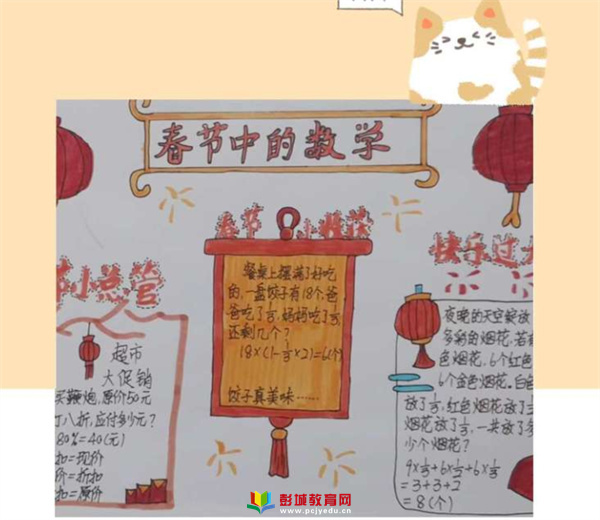 春节中的数学
小总管
超市
大促销
买鞭炮,原价50元
打八折,应付多少元?
80%=40(元)
扣=现价
价=折扣
扣=原价
春节
餐桌上摆满了好吃
的,一盘饺子有18个爸
爸吃了1/3,妈妈吃了1/3,
还剩几个?
18×(1-1/3×2)=6(个)
饺子真美味……
快乐过
夜晚的天空绽放
多彩的烟花,若
色烟花,6个红色
6个金色烟花,白色
放了1/3,红色烟花放了
烟花放了1/3,一共放了多
少个烟花?
9×1/3+6×1/2+6×1/3
=3+3+2
=8(个)
彭城教育网
www.pcjyedu.cn